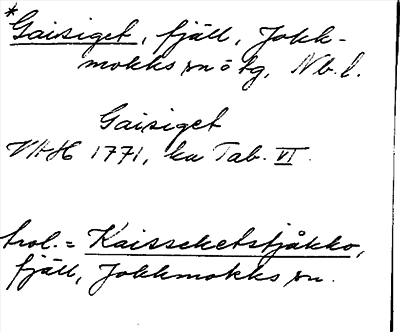 *Gaisiget, fjäll, Jokk-
mokks sn o tg, Nb.l.
Gaisiget
VAH 1771, ka Tab. VI.
trol. = Kaisseketstjåkko,
fjäll, Jokkmokks sn.